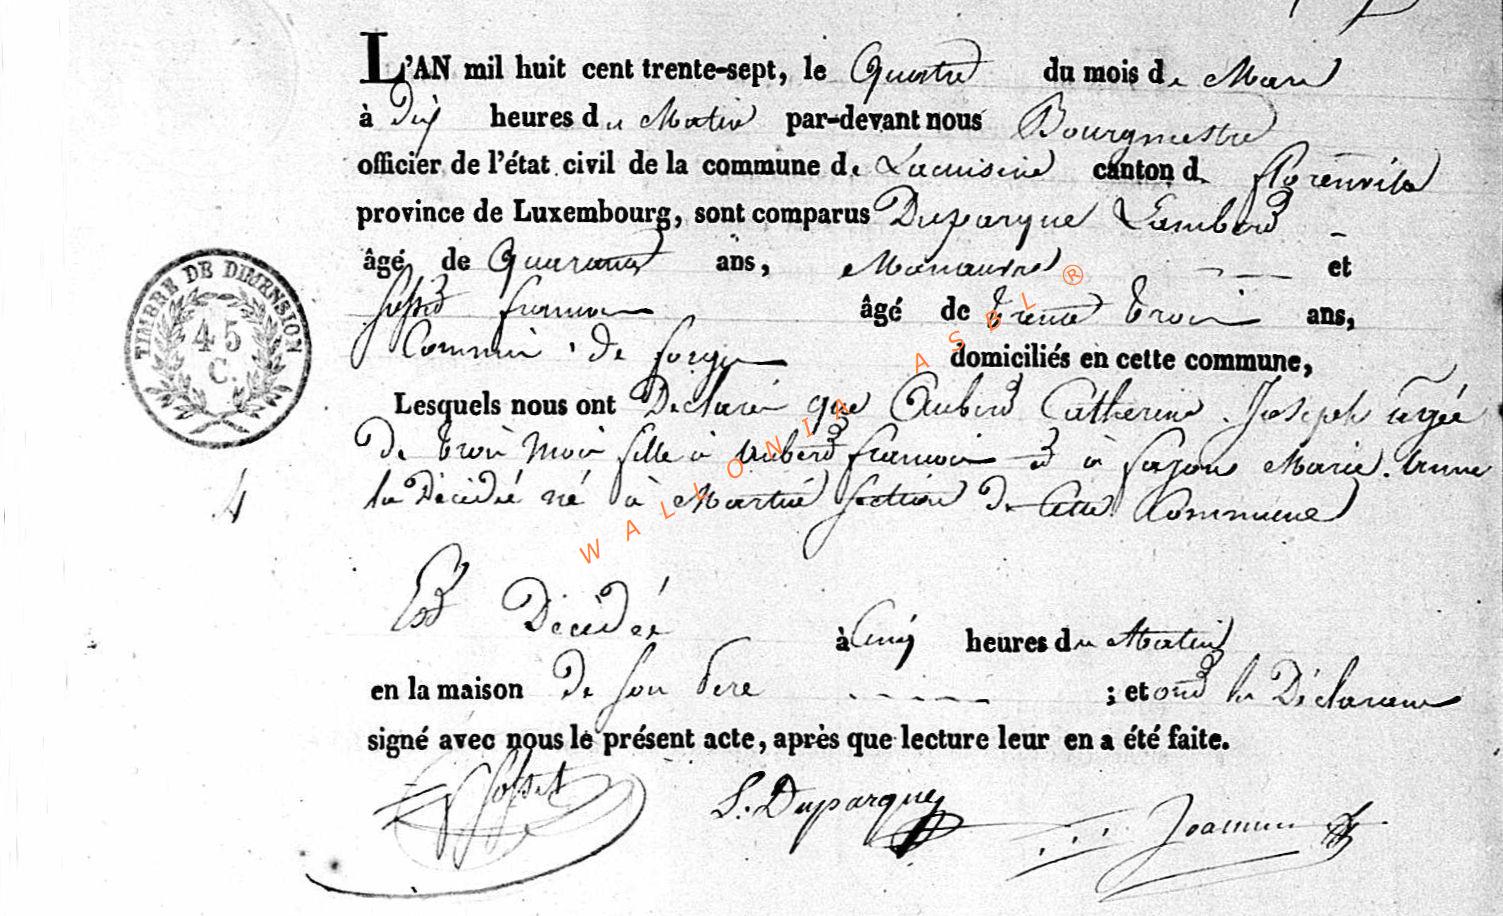 L'AN mil huit cent trente-sept, le Quatre du mois de Mars
à Dix heures du Matin par-devant nous Bourgmestre
officier de l'état civil de la commune de Lacuisine canton de florenville
province de Luxembourg, sont comparus Duparque Lambert
âgé de Quarante ans, Manœuvre et
françois âgé de trente trois ans,
Commis de forge domiciliés en cette commune,
Lesquels nous ont Déclaré que Aubert Catherine Joseph agée
De trois mois fille à Aubert françois et à Marie
la Décédée né à Martué section De cette Commune
Est Décédée à Cinq heures du Matin
en la maison De son Pere ; et ont les Déclarans
signé avec nous le présent acte, après que lecture leur en a été faite.
L. Duparque
TIMBRE DE DIMENSION
45
C.
4
WALLONIA ASBL ®